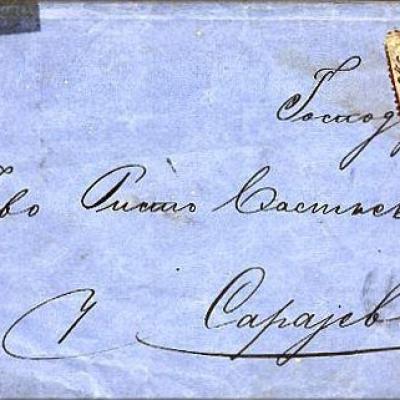 Господ
во Ристо Састић
у Сарајев